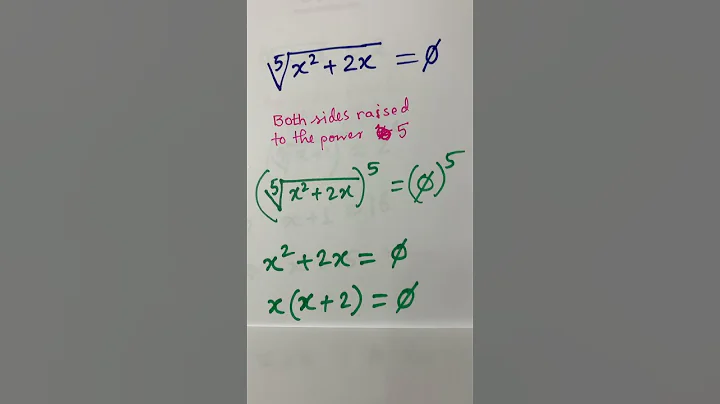 ⁵√(x² + 2x) = ∅
Both sides raised
to the power 5
(⁵√(x² + 2x))⁵ = (∅)⁵
x² + 2x = ∅
x(x + 2) = ∅